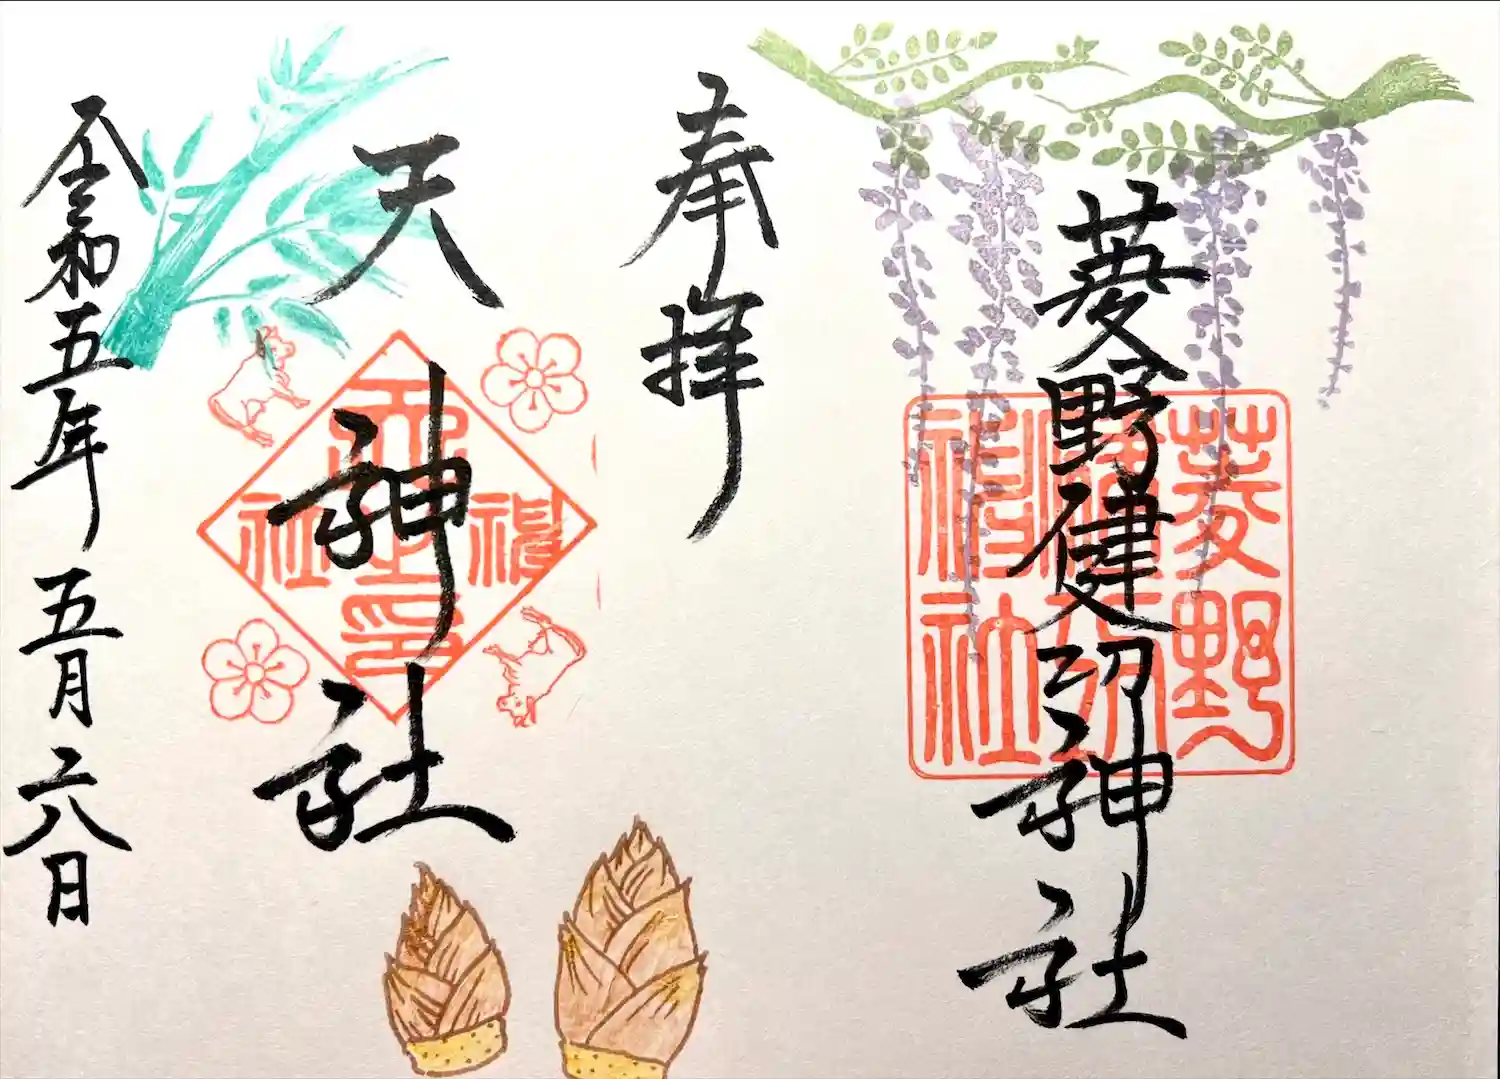 奉拝
菱野健功神社
菱野
健功
神社
天神社
天神社之印
令和五年 五月 二八日